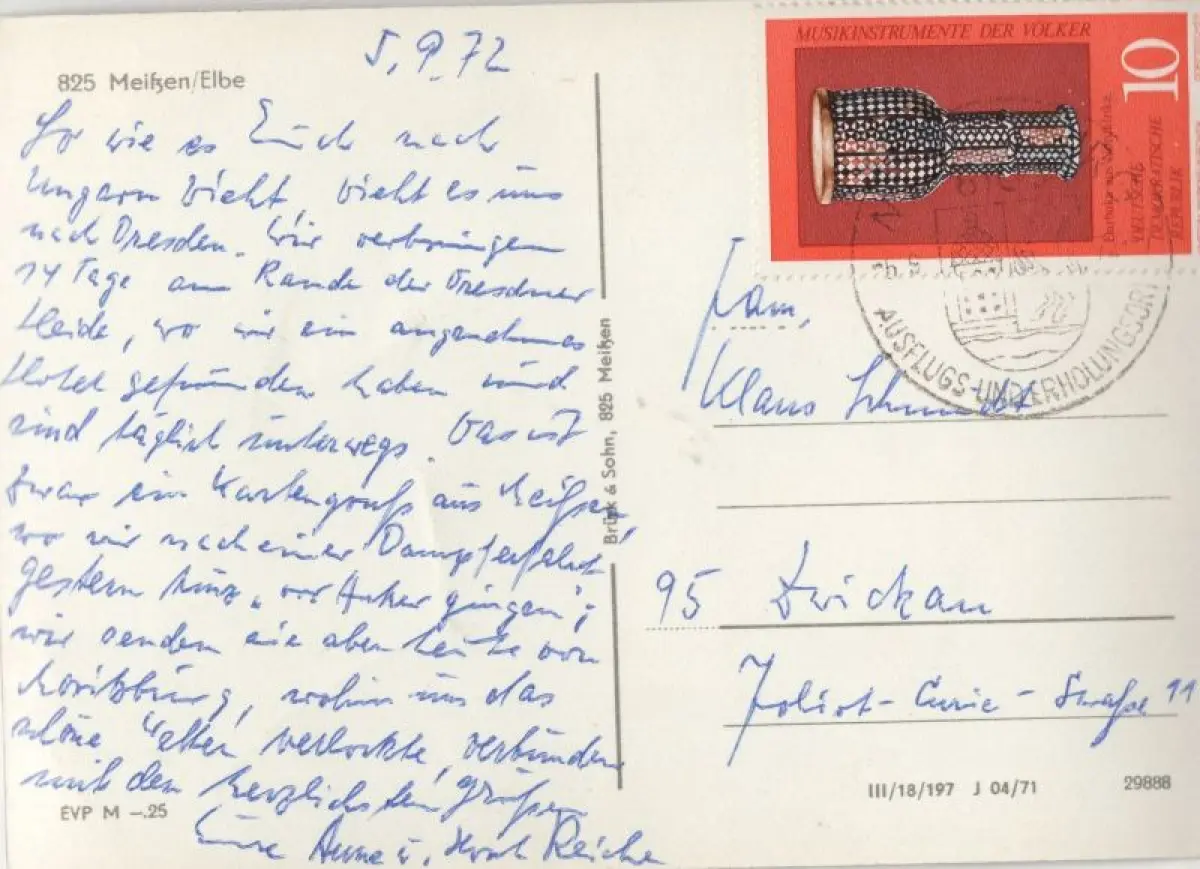 825 Meißen/Elbe
5.9.72
So wie es Euch nach
Ungarn zieht, zieht es uns
nach Dresden. Wir verbringen
14 Tage am Rande der Dresdner
Heide, wo wir ein angenehmes
Hotel gefunden haben und
sind täglich unterwegs. Das ist
zwar ein Kartengruß aus Meißen,
wo wir nach einer Dampferfahrt
gestern kurz „vor Anker gingen";
wir senden sie aber heute von
Moritzburg, wohin uns das
schöne Wetter verlockte, verbunden
mit den herzlichsten Grüßen
Eure Anne u. Horst Reiche
EVP M –.25
Brück & Sohn, 825 Meißen
MUSIKINSTRUMENTE DER VÖLKER
10
DEUTSCHE
DEMOKRATISCHE
REPUBLIK
AUSFLUGS-UND ERHOLUNGSORT
Fam.
Klaus Schmidt
95 Zwickau
Joliot-Curie-Straße 11
III/18/197 J 04/71
29888